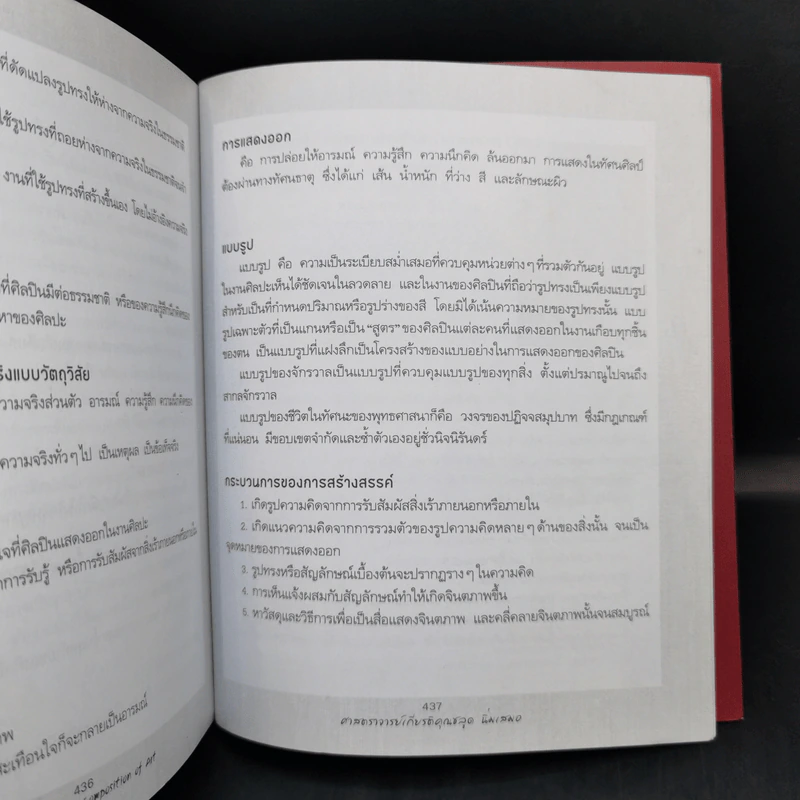 ที่ดัดแปลงรูปทรงให้ห่างจากความจริงในธรรมชาติ
ใช้รูปทรงที่ถอยห่างจากความจริงในธรรมชาติ
งานที่ใช้รูปทรงที่สร้างขึ้นเอง โดยไม่อ้างอิงความจริง
ที่ศิลปินมีต่อธรรมชาติ หรือของความรู้สึกนึกคิดของ
หาของศิลปะ
ริงแบบวัตถุวิสัย
วามจริงส่วนตัว อารมณ์ ความรู้สึก ความนึกคิดของ
ความจริงทั่วๆไป เป็นเหตุผล เป็นข้อเท็จจริง
ใจที่ศิลปินแสดงออกในงานศิลปะ
การรับรู้ หรือการรับสัมผัสจากสิ่งเร้าภายนอกหรือภายใน
าพ
ะเทือนใจก็จะกลายเป็นอารมณ์
436
Composition of Art
การแสดงออก
คือ การปล่อยให้อารมณ์ ความรู้สึก ความนึกคิด ล้นออกมา การแสดงในทัศนศิลป์
ต้องผ่านทางทัศนธาตุ ซึ่งได้แก่ เส้น น้ำหนัก ที่ว่าง สี และลักษณะผิว
แบบรูป
แบบรูป คือ ความเป็นระเบียบสม่ำเสมอที่ควบคุมหน่วยต่างๆที่รวมตัวกันอยู่ แบบรูป
ในงานศิลปะเห็นได้ชัดเจนในลวดลาย และในงานของศิลปินที่ถือว่ารูปทรงเป็นเพียงแบบรูป
สำหรับเป็นที่กำหนดปริมาณหรือรูปร่างของสี โดยมิได้เน้นความหมายของรูปทรงนั้น แบบ
รูปเฉพาะตัวที่เป็นแกนหรือเป็น "สูตร" ของศิลปินแต่ละคนที่แสดงออกในงานเกือบทุกชิ้น
ของตน เป็นแบบรูปที่แฝงลึกเป็นโครงสร้างของแบบอย่างในการแสดงออกของศิลปิน
แบบรูปของจักรวาลเป็นแบบรูปที่ควบคุมแบบรูปของทุกสิ่ง ตั้งแต่ปรมาณูไปจนถึง
สากลจักรวาล
แบบรูปของชีวิตในทัศนะของพุทธศาสนาก็คือ วงจรของปฏิจจสมุปบาท ซึ่งมีกฎเกณฑ์
ที่แน่นอน มีขอบเขตจำกัดและซ้ำตัวเองอยู่ชั่วนิจนิรันดร์
กระบวนการของการสร้างสรรค์
1. เกิดรูปความคิดจากการรับสัมผัสสิ่งเร้าภายนอกหรือภายใน
2. เกิดแนวความคิดจากการรวมตัวของรูปความคิดหลายๆด้านของสิ่งนั้น จนเป็น
จุดหมายของการแสดงออก
3. รูปทรงหรือสัญลักษณ์เบื้องต้นจะปรากฏรางๆในความคิด
4. การเห็นแจ้งผสมกับสัญลักษณ์ทำให้เกิดจินตภาพขึ้น
5. หาวัสดุและวิธีการเพื่อเป็นสื่อแสดงจินตภาพ และคลี่คลายจินตภาพนั้นจนสมบูรณ์
437
ศาสตราจารย์เกียรติคุณชลูด นิ่มเสมอ